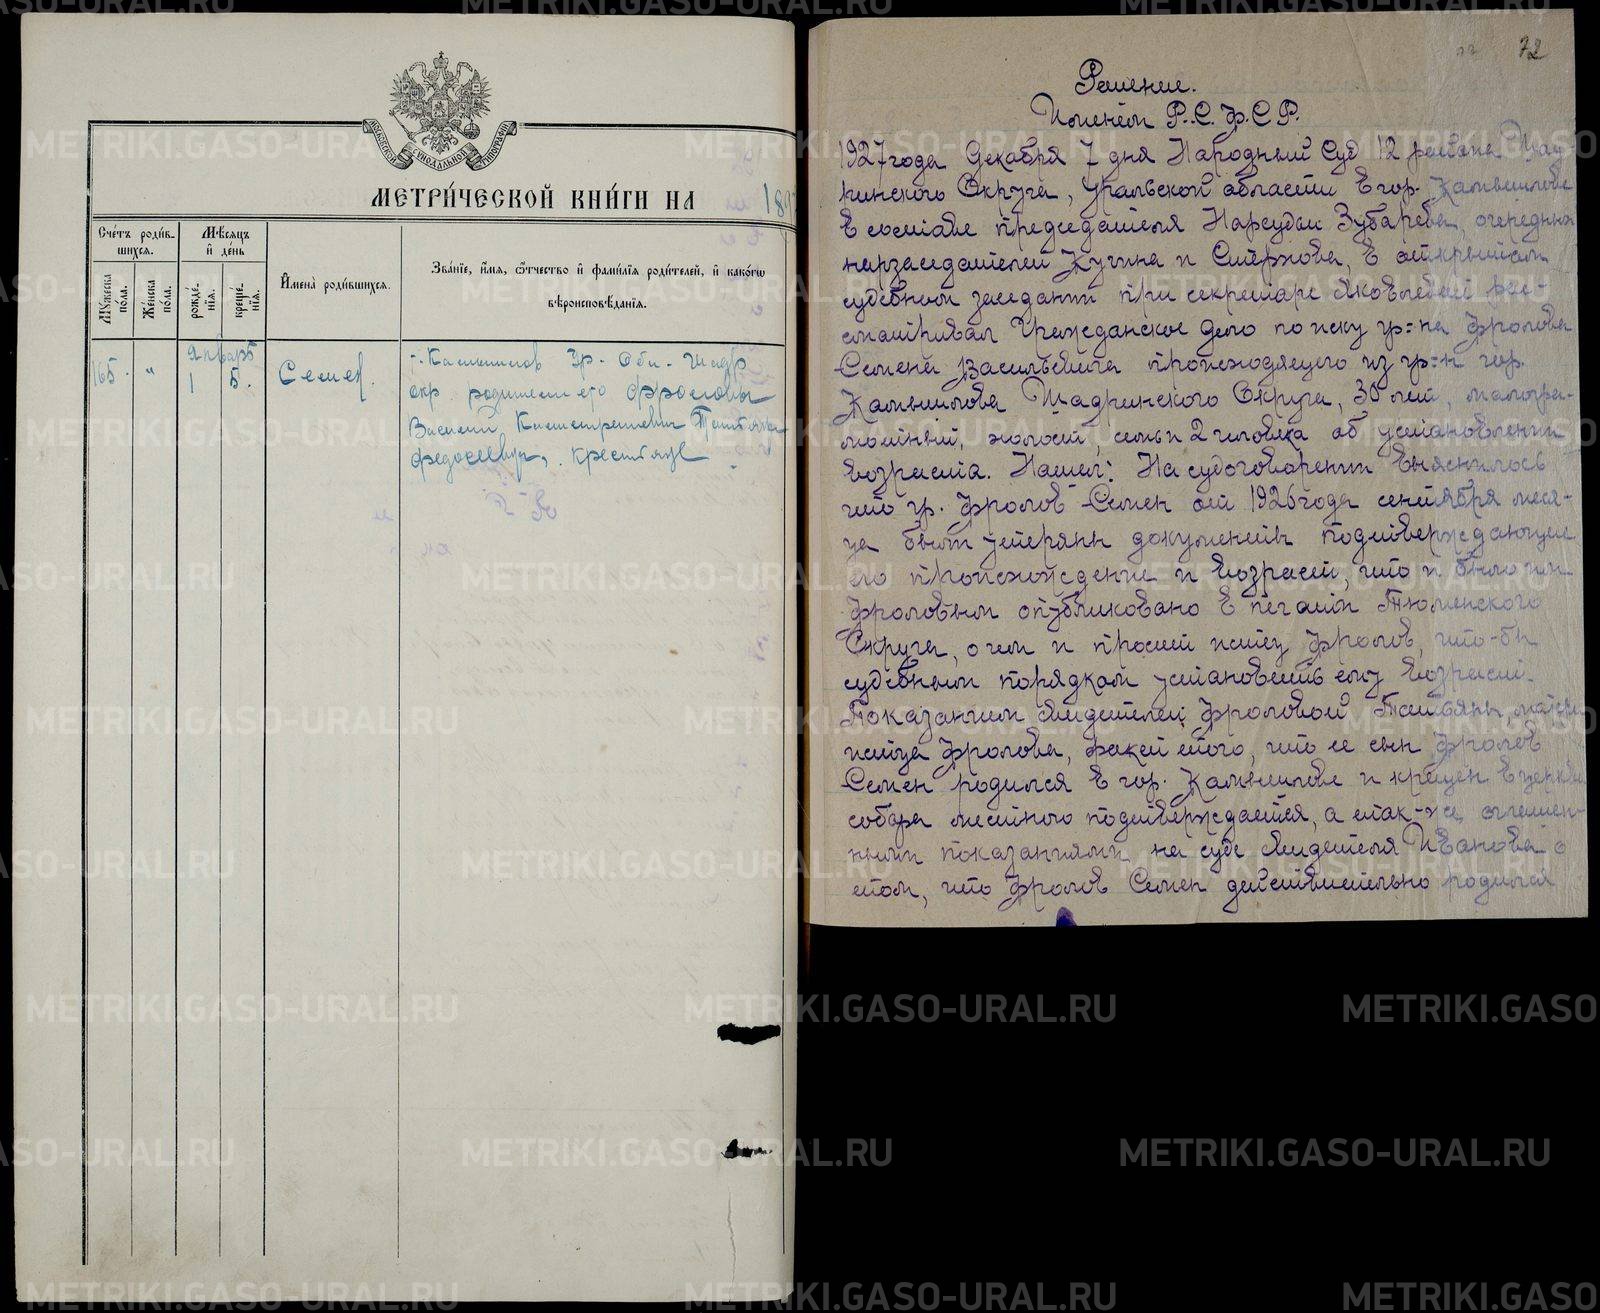 МОСКОВСКОЙ СУНОДАЛЬНОЙ ТИПОГРАФІИ
МЕТРИ́ЧЕСКОЙ КНИ́ГИ НА 1897
Сче́тъ роди́в-
шихся.
Мѣ́сяцъ
и де́нь
Му́жеска
по́ла.
Же́нска
по́ла.
рожде́-
нїя.
креще́-
нїя.
И҆мена̀ роди́вшихся.
Зва́нїе, и҆́мя, ѻ҆́тчество и҆ фами́лїя роди́телей, и҆ како́гѡ
вѣроисповѣ́данїя.
165. " Январь
1 5. Семен.
г. Камышлов Ур. Обл. Шадр
окр. родители его Фроловы
Василий Татьяна
крестьяне
72
Решение.
Именем Р.С.Ф.С.Р.
1927 года Декабря 7 дня Народный Суд 12 района Шад-
ринского Округа, Уральской области в гор. Камышлове
в составе председателя Нарсудьи Зубарева, очередных
нарзаседателей Кугина и Смирнова, в открытом
судебном заседании при секретаре Яковлевой рас-
сматривал Гражданское дело по иску гр-на Фролова
Семена Васильевича происходящего из гр-н гор.
Камышлова Шадринского Округа, 30 лет, малогра-
мотный, холост, семьи 2 человека об установлении
возраста. Нашел: На судоговорении выяснилось
что гр. Фролов Семен от 1926 года сентября меся-
ца были утеряны документы подтверждающие
его происхождение и возраст, что и было им
Фроловым опубликовано в печати Тюменского
Округа, о чем и просит истец Фролов, что-бы
судебным порядком установить ему возраст.
Показанием свидетелей: Фроловой Татьяны, матери
истца Фролова, факт того, что ее сын Фролов
Семен родился в гор. Камышлове и крещен в церкви
собора местного подтверждается, а так-же оглашен-
ными показаниями на суде свидетеля Иванова о
том, что Фролов Семен действительно родился
METRIKI.GASO-URAL.RU